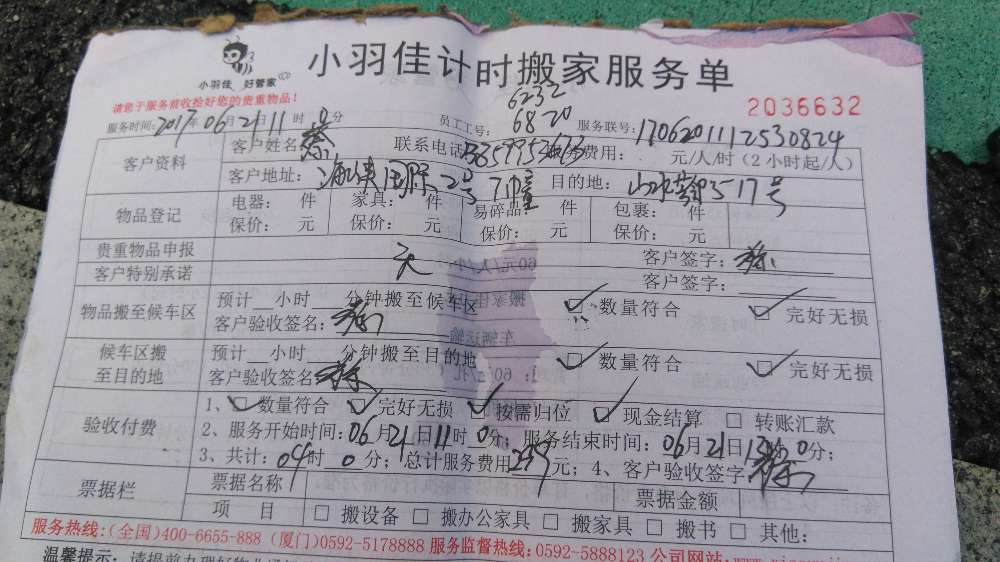 小羽佳计时搬家服务单
小羽佳 好管家
请您于服务前收拾好您的贵重物品!
2036632
6232
服务时间:2017年06月21日11时0分 员工工号:6820 服务联号:1706201112530824
客户资料 客户姓名: 联系电话 服务费用: 元/人/时(2小时起/人)
客户地址:海峡国际2号7幢 目的地:山水517号
物品登记 电器: 件 家具: 件 易碎品: 件 包裹: 件
保价: 元 保价: 元 保价: 元 保价: 元
贵重物品申报 无 客户签字:
客户特别承诺 客户签字:
物品搬至候车区 预计__小时__分钟搬至候车区 数量符合 完好无损
客户验收签名:
候车区搬至目的地 预计__小时__分钟搬至目的地 数量符合 完好无损
客户验收签名:
验收付费 1、数量符合 完好无损 按需归位 现金结算 转账汇款
2、服务开始时间:06月21日11时0分;服务结束时间:06月21日13时0分;
3、共计:04时0分;总计服务费用239元;4、客户验收签字
票据栏 票据名称 票据金额
项目 搬设备 搬办公家具 搬家具 搬书 其他:
服务热线:(全国)400-6655-888 (厦门)0592-5178888 服务监督热线:0592-5888123 公司网站:
温馨提示: